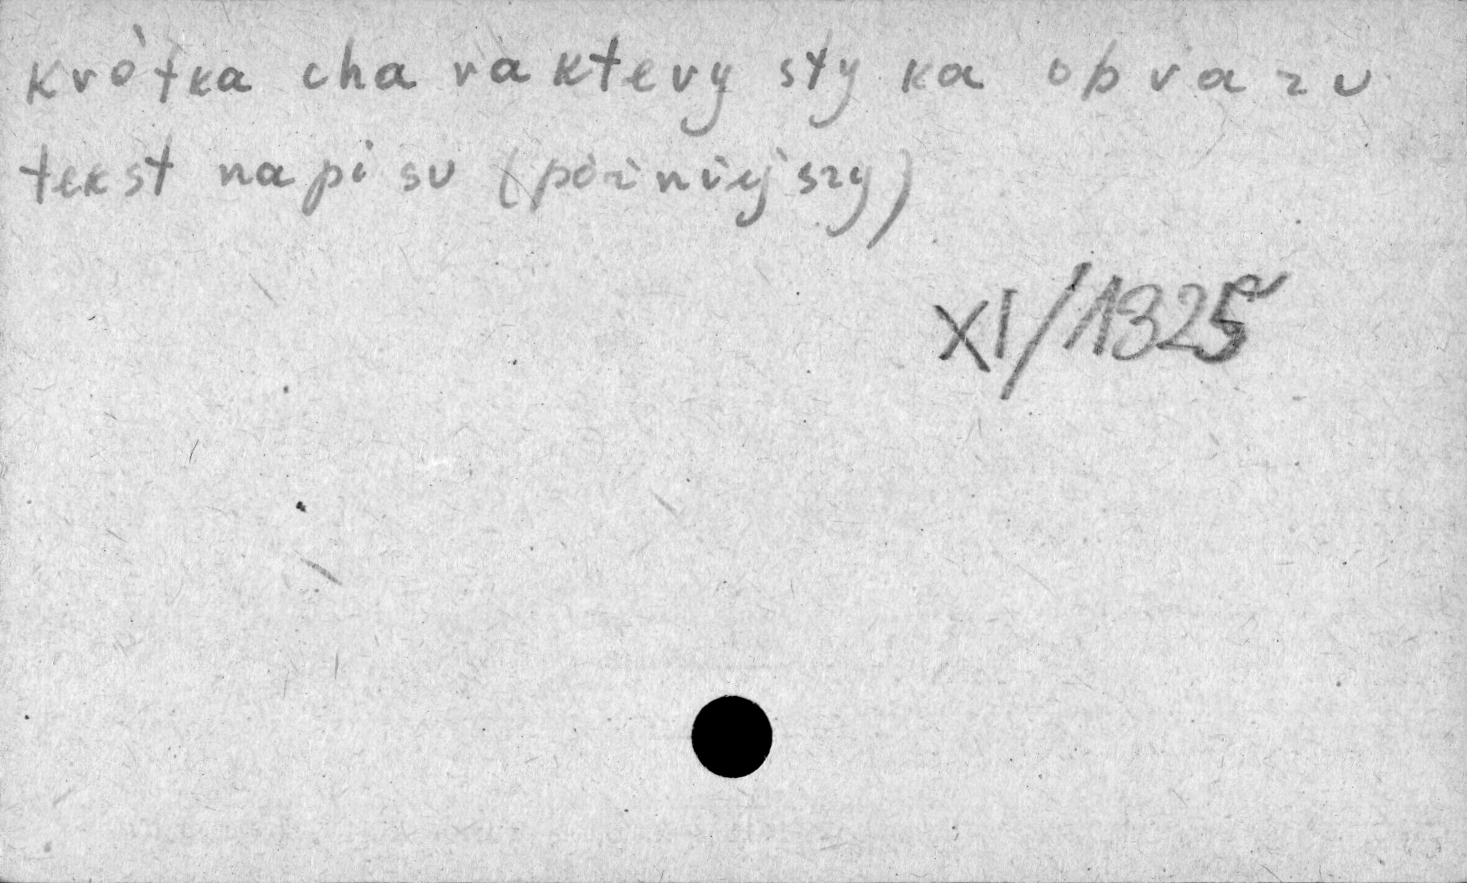 krótka charakterystyka obrazu
tekst napisu (późniejszy)
XI/1325